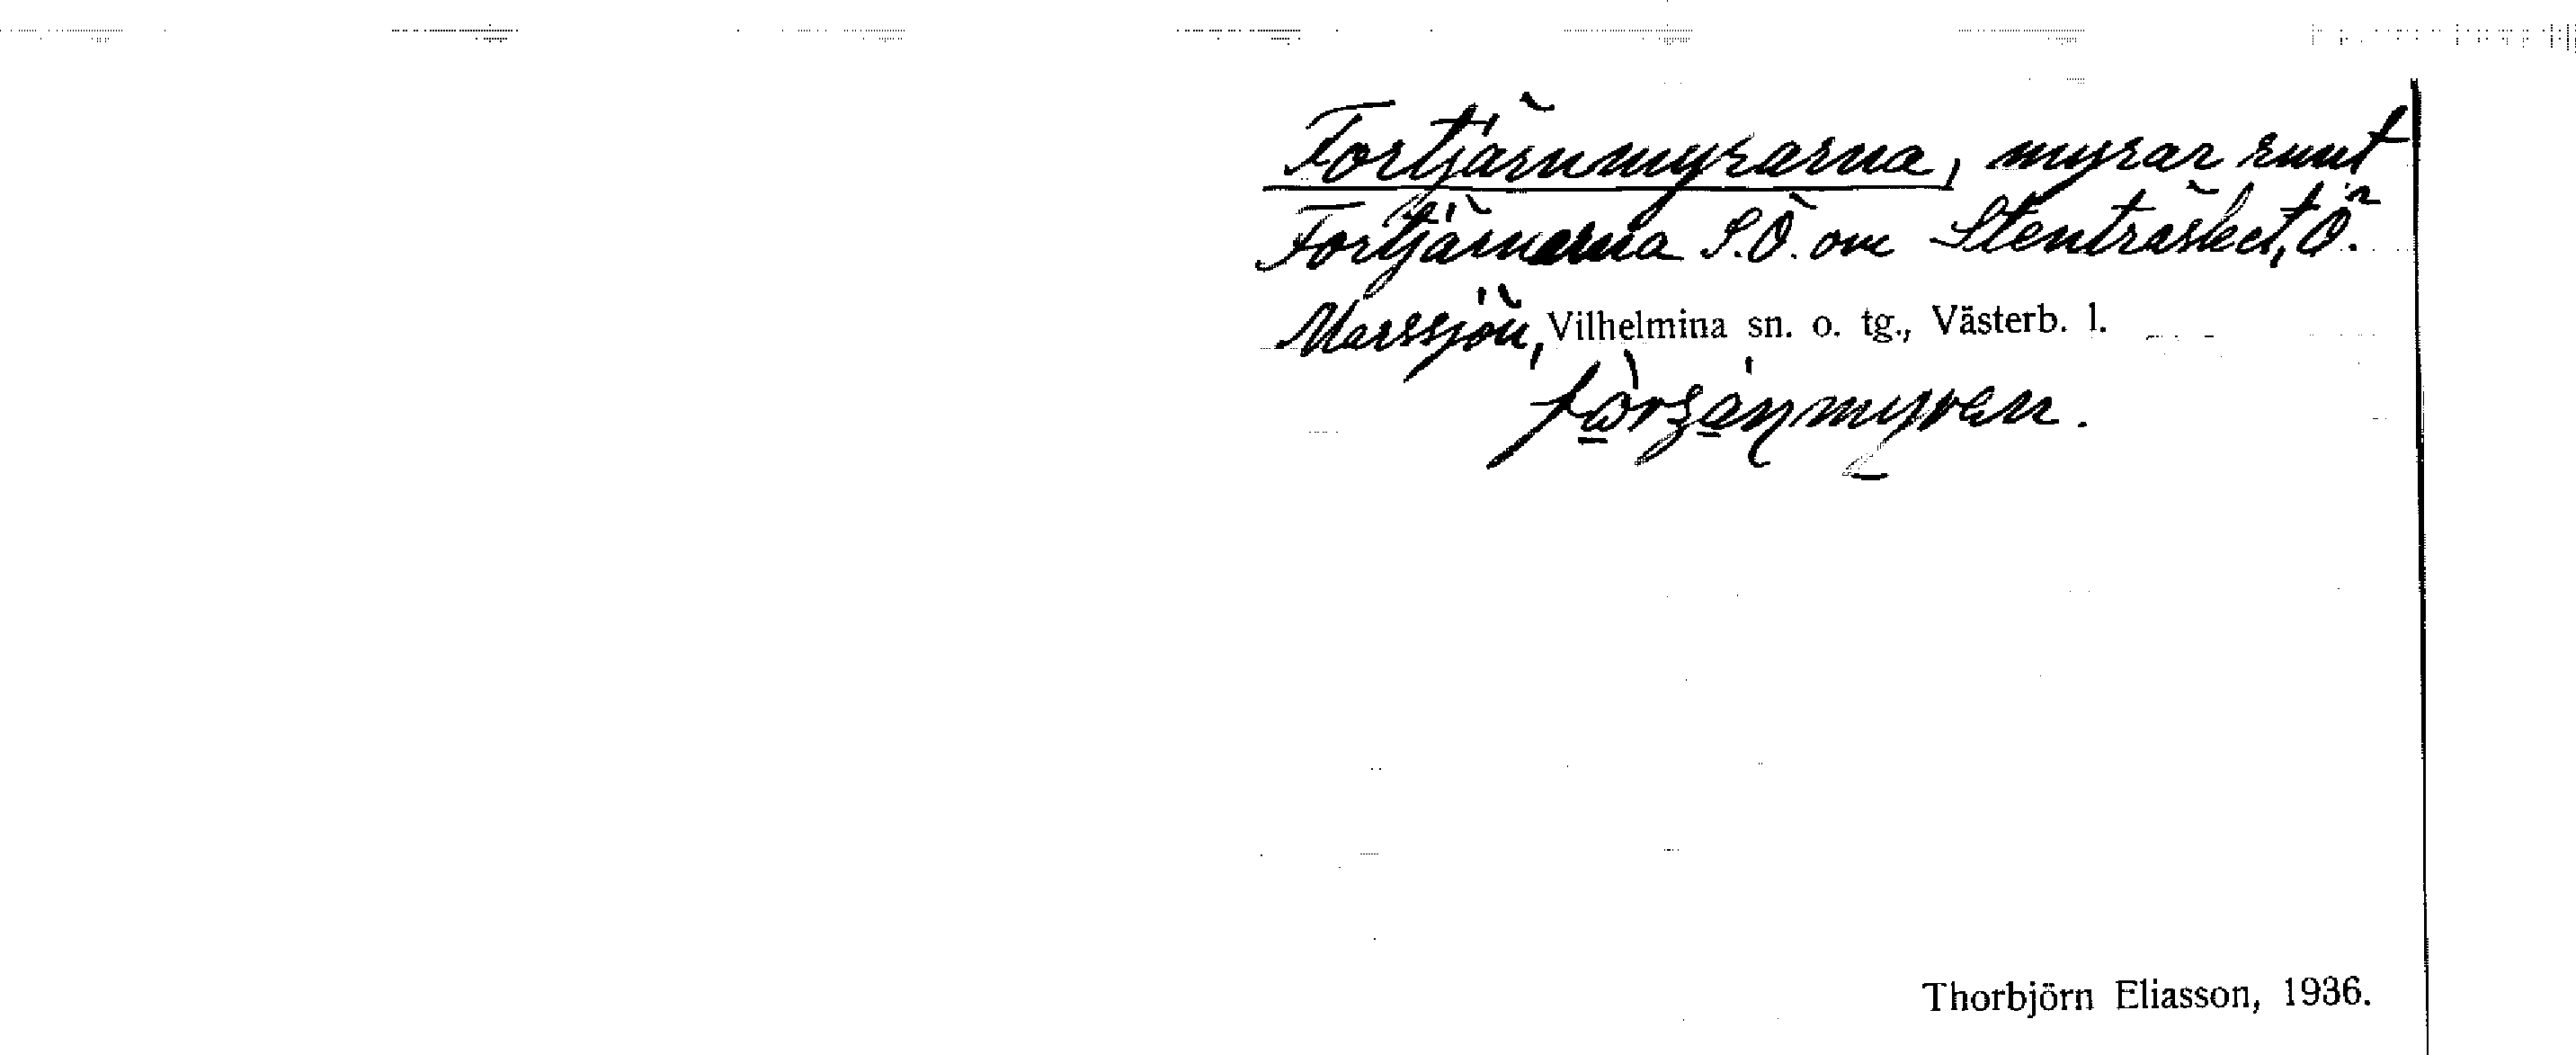 Fortjärnmyrarna, myrar runt
Fortjärnarna S.Ö. om Stenträsket, Ö.
Marssjön, Vilhelmina sn. o. tg., Västerb. l.
Thorbjörn Eliasson, 1936.